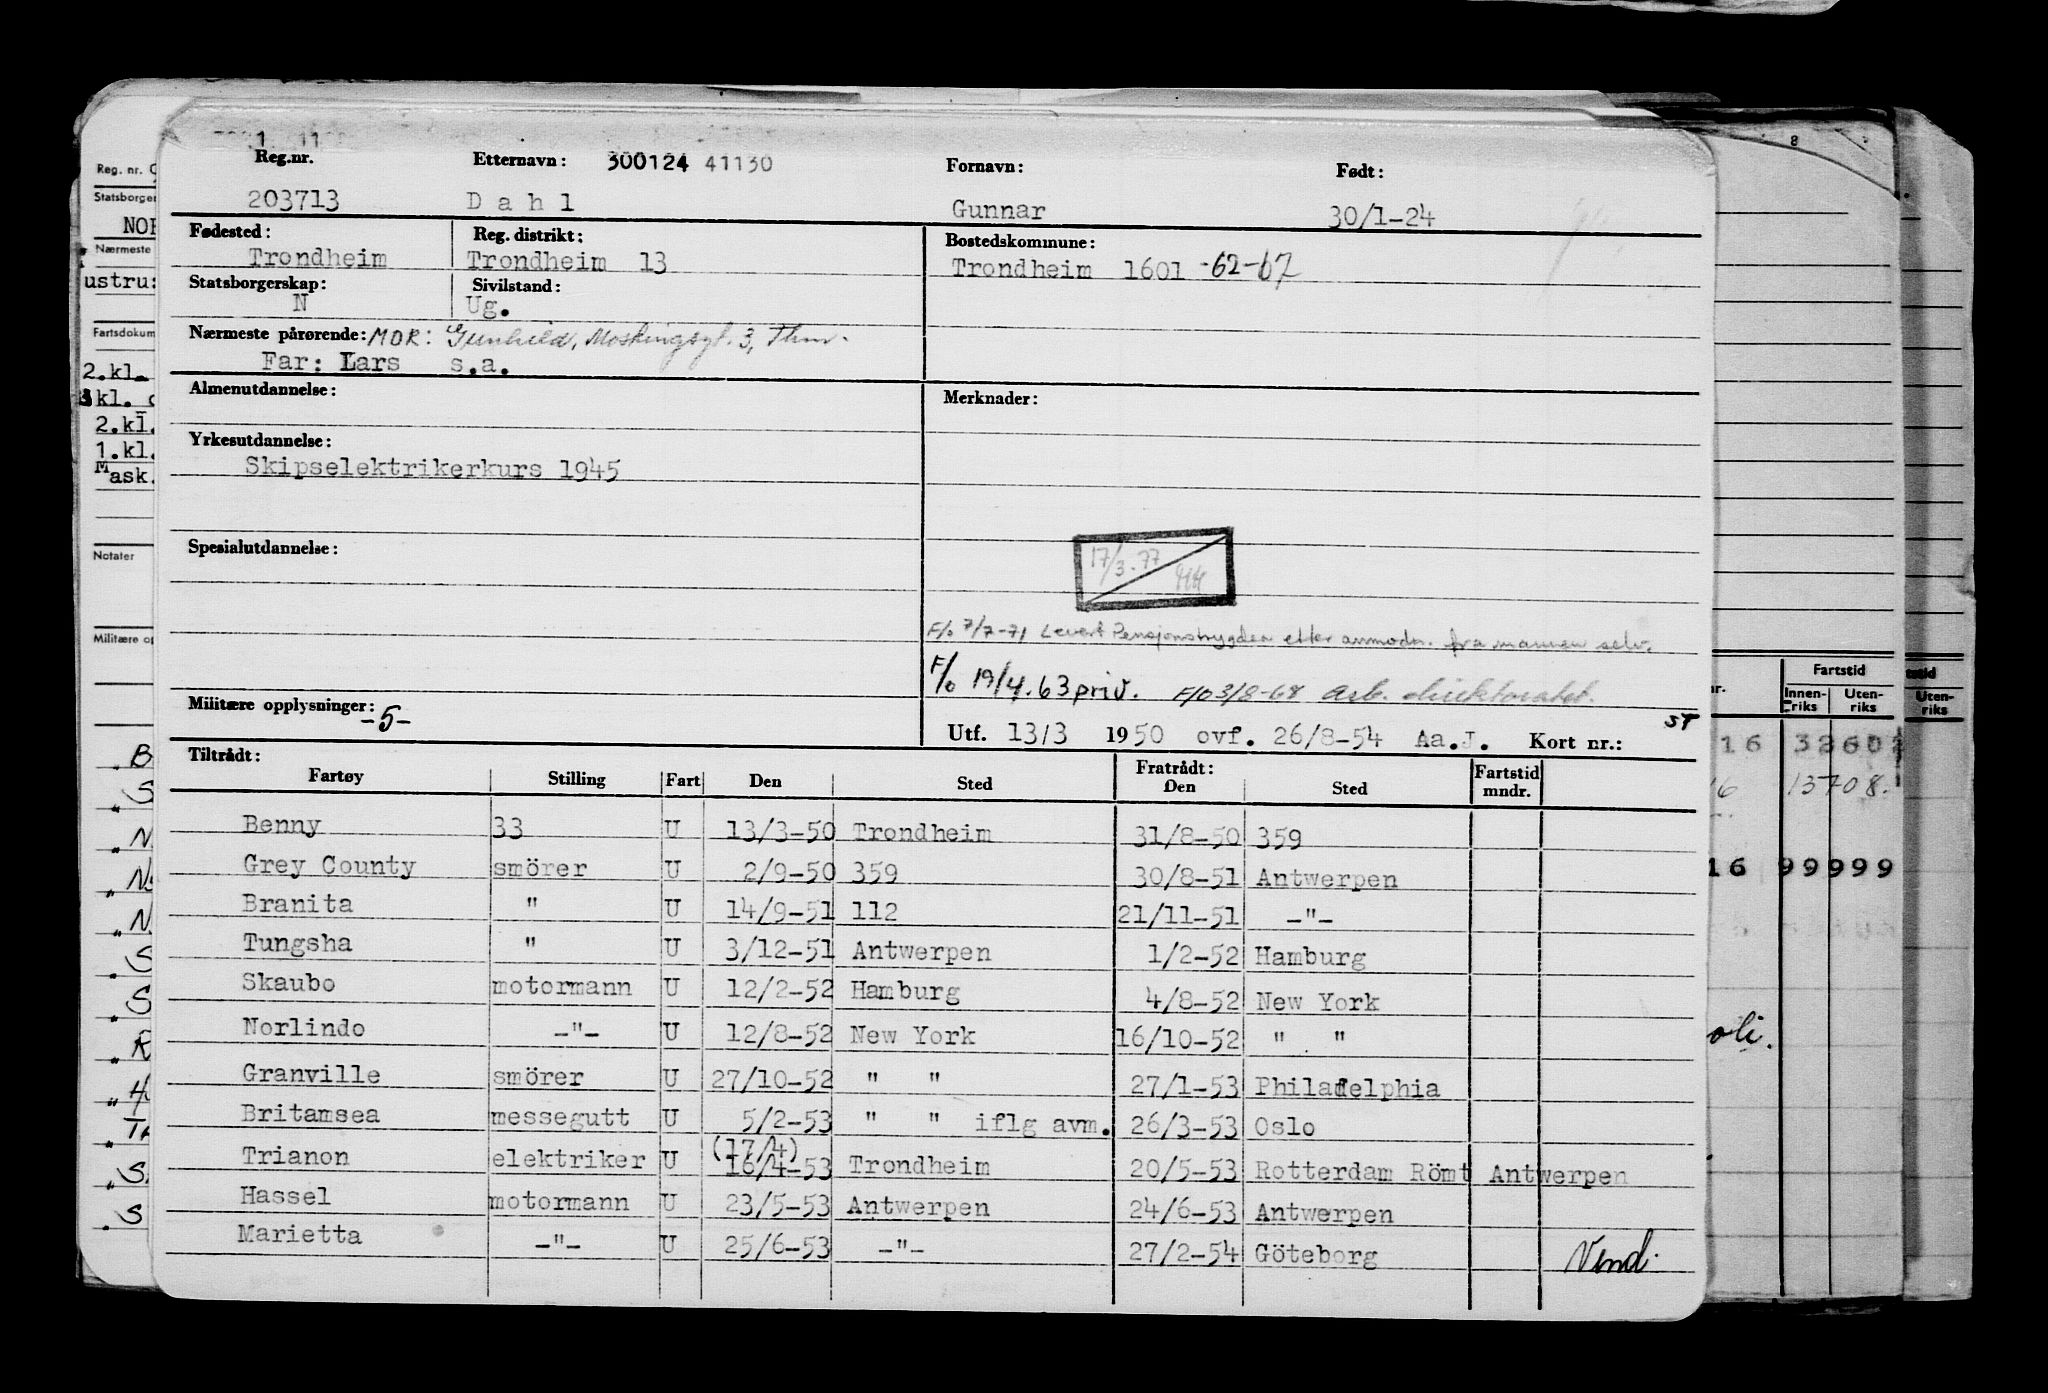 Reg.nr. Etternavn: 300124 41130 Fornavn: Født:
203713 Dahl Gunnar 30/1-24
Fødested: Reg. distrikt: Bostedskommune:
Trondheim Trondheim 13 Trondheim 1601 -62-67
Statsborgerskap: Sivilstand:
N Ug.
Nærmeste pårørende: MOR: Gunhild, 3, Thm.
Far: Lars s.a.
Almenutdannelse: Merknader:
Yrkesutdannelse:
Skipselektrikerkurs 1945
Spesialutdannelse:
17/3-77
F/o 7/7-71 Levert Pensjonstrygden etter anmodn. fra mannen selv.
F/o 19/4.63 priv. F/o 3/8-68 Arb. direktoratet.
Militære opplysninger: -5-
ST
Utf. 13/3 1950 ovf. 26/8-54 Aa.J. Kort nr.:
Tiltrådt: Fratrådt:
Fartøy Stilling Fart Den Sted Den Sted Fartstid mndr.
Benny 33 U 13/3-50 Trondheim 31/8-50 359
Grey County smörer U 2/9-50 359 30/8-51 Antwerpen
Branita " U 14/9-51 112 21/11-51 -"-
Tungsha " U 3/12-51 Antwerpen 1/2-52 Hamburg
Skaubo motormann U 12/2-52 Hamburg 4/8-52 New York
Norlindo -"- U 12/8-52 New York 16/10-52 " "
Granville smörer U 27/10-52 " " 27/1-53 Philadelphia
Britamsea messegutt U 5/2-53 " " iflg avm. 26/3-53 Oslo
(17/4)
Trianon elektriker U 16/4-53 Trondheim 20/5-53 Rotterdam Römt Antwerpen
Hassel motormann U 23/5-53 Antwerpen 24/6-53 Antwerpen
Marietta -"- U 25/6-53 -"- 27/2-54 Göteborg
Vend.
Reg. nr.
Statsborger
NOR
Nærmeste
ustru:
Fartsdokum
2.kl.
kl.
2.kl.
1.kl.
Mask.
Notater
Militære op
8
Fartstid
Innen-riks Uten-riks
Uten-riks
16 32602
13708.
16 99999
oli.